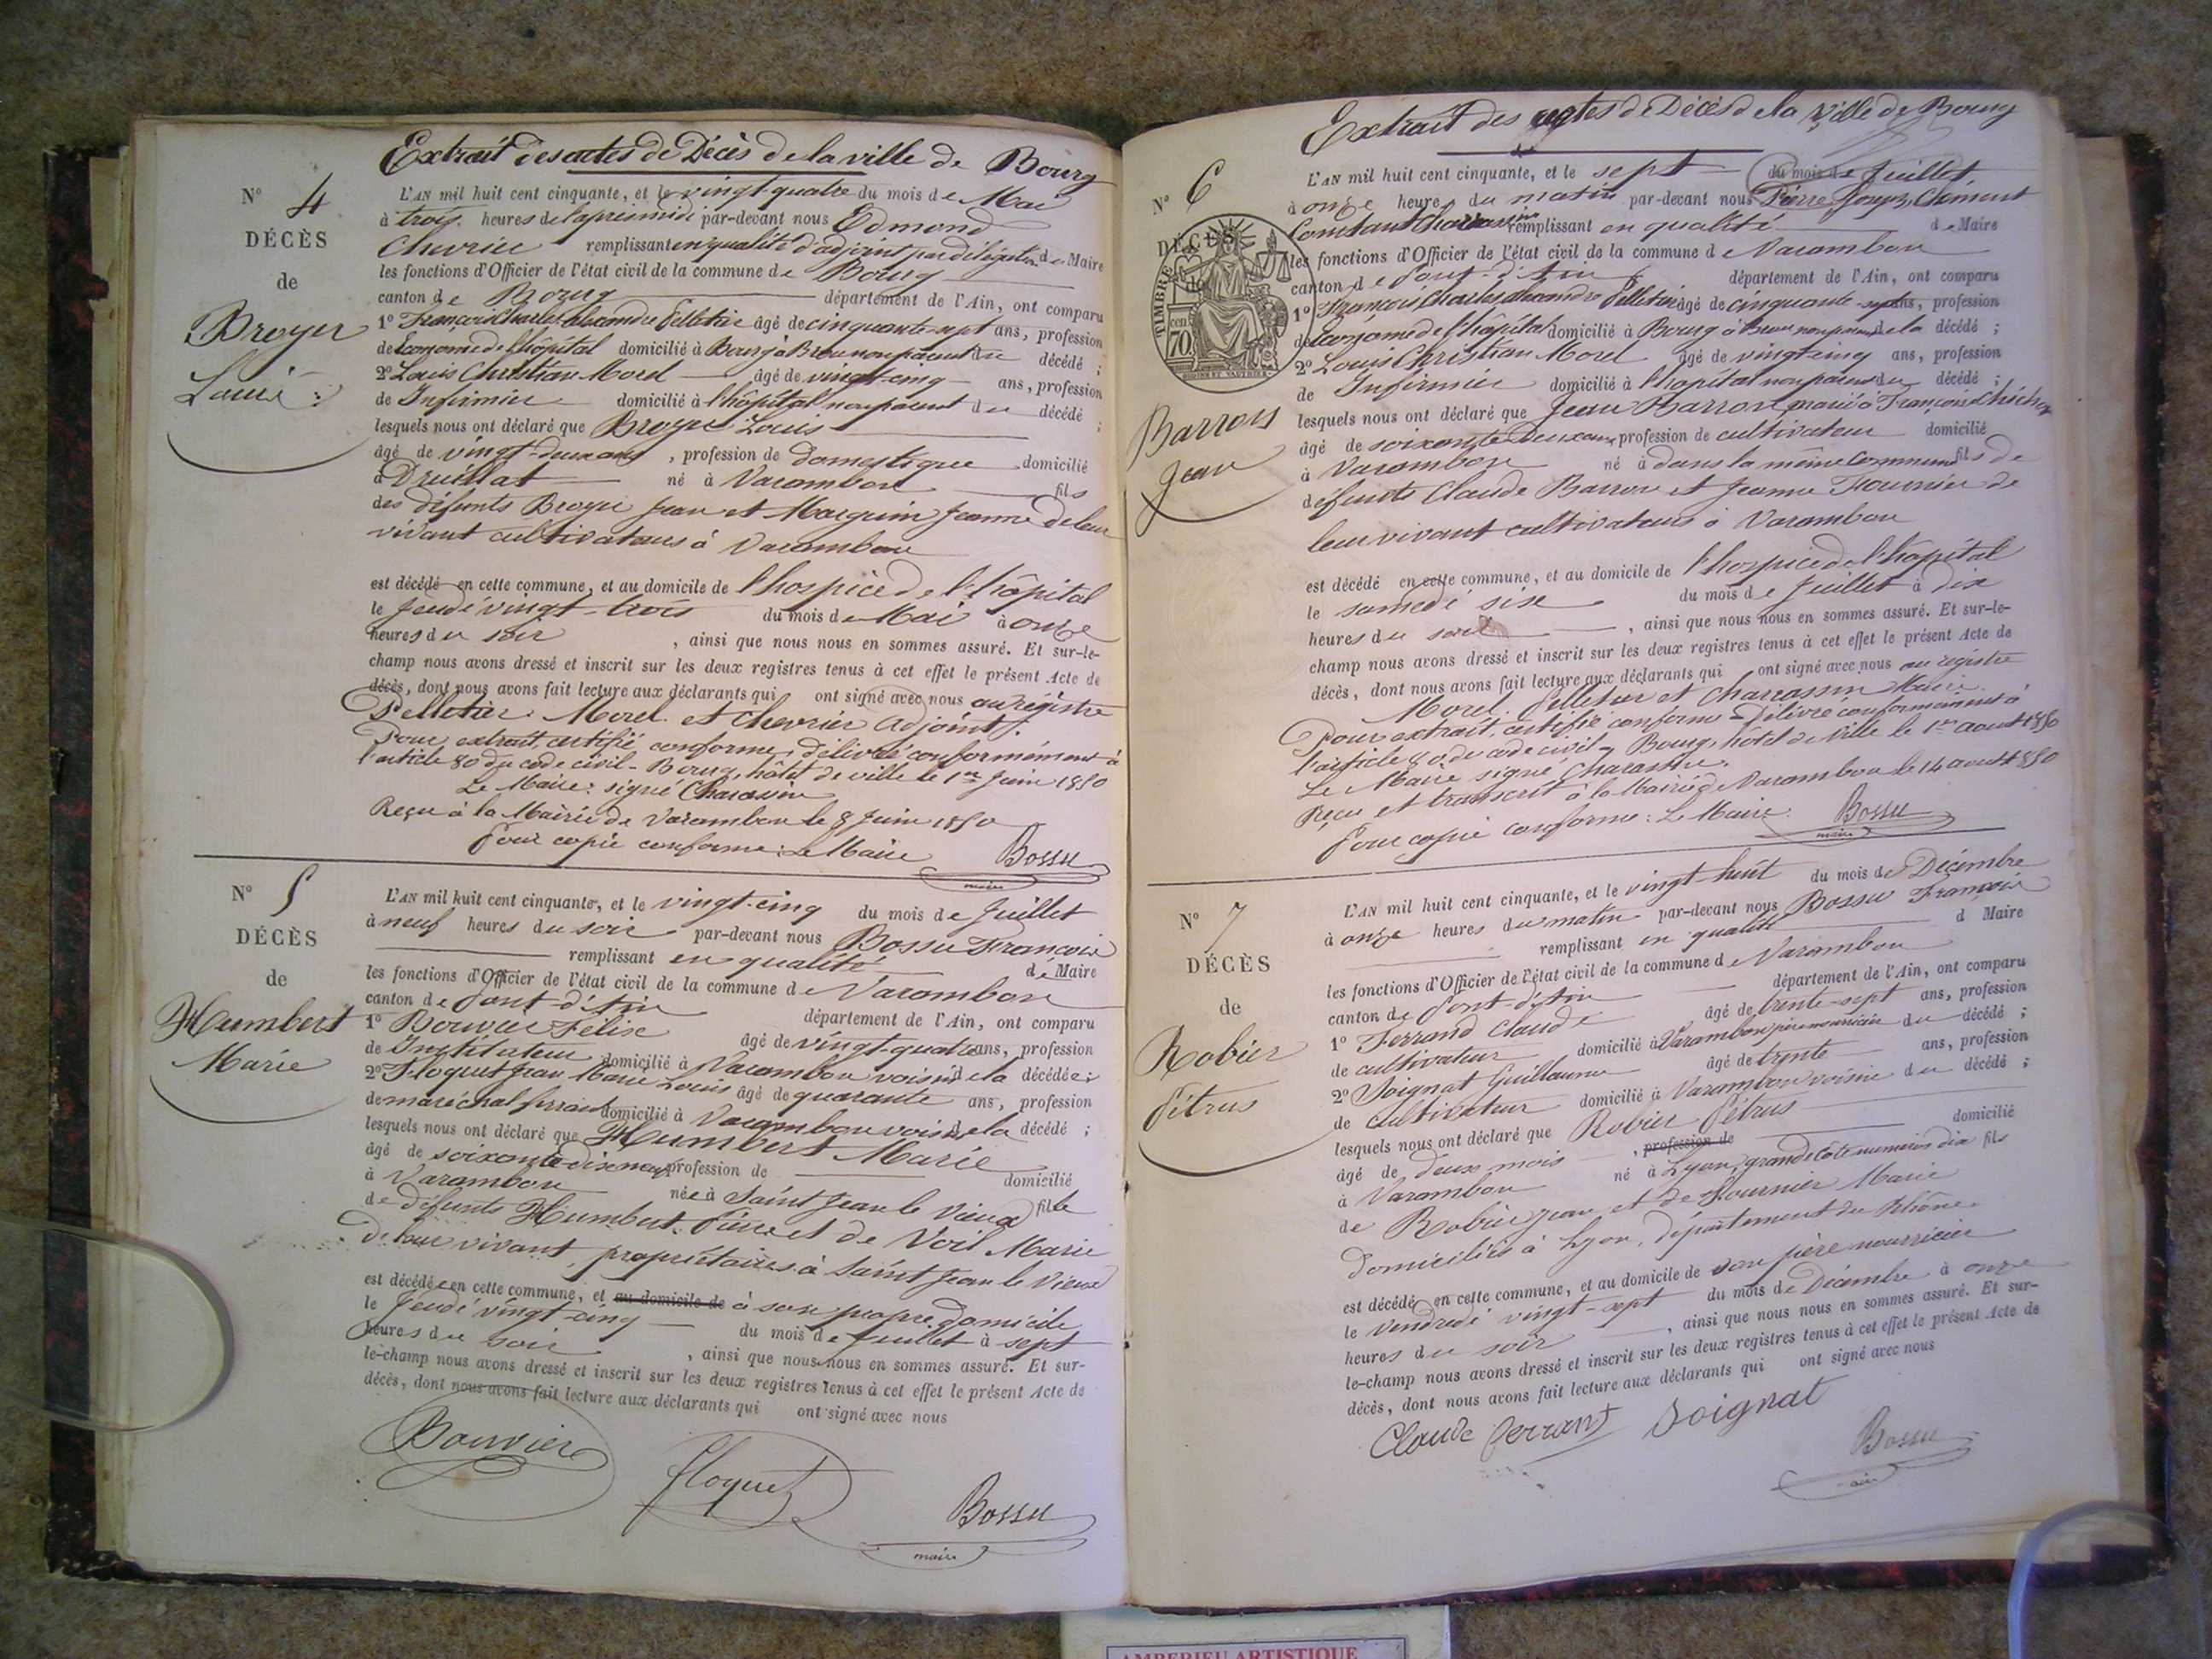 Extrait des actes de Décès de la ville de Bourg
N° 4
DÉCÈS
de
Broyer
Louis
L'AN mil huit cent cinquante, et le vingt-quatre du mois de Mai
à trois heures de l'apresmidi par-devant nous Edmond
Chevrier remplissant en qualité d'adjoint par délégation de Maire
les fonctions d'Officier de l'état civil de la commune de Bourg
canton de Bourg département de l'Ain, ont comparu
1° François Charles Alexandre Pelletier âgé de cinquante-sept ans, profession
de Econome de l'hôpital domicilié à Bourg à Brou non parent du décédé ;
2° Louis Christian Morel âgé de vingt-cinq ans, profession
de Infirmier domicilié à l'hôpital non parent du décédé ;
lesquels nous ont déclaré que Broyer Louis
âgé de vingt-deux ans, profession de domestique domicilié
à Druillat né à Varambon fils
des défunts Broyer Jean et Marguin Jeanne de leur
vivant cultivateurs à Varambon
est décédé en cette commune, et au domicile de l'hospice de l'hôpital
le Jeudi vingt-trois du mois de Mai à onze
heures du soir, ainsi que nous nous en sommes assuré. Et sur-le-
champ nous avons dressé et inscrit sur les deux registres tenus à cet effet le présent Acte de
décès, dont nous avons fait lecture aux déclarants qui ont signé avec nous au régistre
Pelletier. Morel. et Chevrier adjoint.
Pour extrait, certifié conforme, délivré conformément à
l'article 80 du code civil - Bourg, hôtel de ville le 1er Juin 1850
Le Maire : signé Charassin
Reçu à la Mairie de Varambon le 8 Juin 1850
Pour copie conforme : Le Maire Bossu
maire
N° 5
DÉCÈS
de
Humbert
Marie
L'AN mil huit cent cinquante, et le vingt-cinq du mois de Juillet
à neuf heures du soir par-devant nous Bossu François
remplissant en qualité de Maire
les fonctions d'Officier de l'état civil de la commune de Varambon
canton de Pont-d'Ain département de l'Ain, ont comparu
1° Bouvier Félix âgé de vingt-quatre ans, profession
de Instituteur domicilié à Varambon voisin de la décédée ;
2° Floquet Jean Marie Louis âgé de quarante ans, profession
de maréchal ferrant domicilié à Varambon voisin de la décédé ;
lesquels nous ont déclaré que Humbert Marie
âgé de soixante-dix neuf profession de domicilié
à Varambon née à Saint Jean le Vieux fille
de défunts Humbert Pierre et de Voil Marie
De leur vivant, propriétaires à Saint Jean le Vieux
est décédée en cette commune, et au domicile de à son propre domicile
le Jeudi vingt-cinq du mois de Juillet à sept
heures du soir, ainsi que nous nous en sommes assuré. Et sur-
le-champ nous avons dressé et inscrit sur les deux registres tenus à cet effet le présent Acte de
décès, dont nous avons fait lecture aux déclarants qui ont signé avec nous
Bouvier
floquet
Bossu
maire
Extrait des actes de Décès de la Ville de Bourg
N° 6
DÉCÈS
de
TIMBRE
cen
70
Barron
Jean
L'AN mil huit cent cinquante, et le sept du mois de Juillet
à onze heures du matin par-devant nous Pierre Joseph Clément
Constant Charassin remplissant en qualité de Maire
les fonctions d'Officier de l'état civil de la commune de Varambon
canton de Pont-d'Ain département de l'Ain, ont comparu
1° François Charles Alexandre Pelletier âgé de cinquante-sept ans, profession
de Econome de l'hôpital domicilié à Bourg à Brou non parent de la décédé ;
2° Louis Christian Morel âgé de vingt-cinq ans, profession
de Infirmier domicilié à l'hopital non parent du décédé ;
lesquels nous ont déclaré que Jean Barron marié à Françoise
âgé de soixante deux ans, profession de cultivateur domicilié
à Varambon né à dans la même Commune fils de
défunts Claude Barron et Jeanne Fournier de
leur vivant cultivateurs à Varambon
est décédé en cette commune, et au domicile de l'hospice de l'hôpital
le samedi sixe du mois de Juillet à dix
heures du soir, ainsi que nous nous en sommes assuré. Et sur-le-
champ nous avons dressé et inscrit sur les deux registres tenus à cet effet le présent Acte de
décès, dont nous avons fait lecture aux déclarants qui ont signé avec nous au régistre
Morel. Pelletier et Charassin Maire.
Pour extrait, certifié conforme - Délivré conformément à
l'article 80 de code civil - Bourg, hôtel de Ville le 1er aout 1850
Le Maire signé Charassin.
Reçu et transcrit à la Mairie de Varambon le 14 aout 1850
Pour copie conforme : Le Maire Bossu
maire
N° 7
DÉCÈS
de
Robier
Pétrus
L'AN mil huit cent cinquante, et le vingt-huit du mois de Décembre
à onze heures du matin par-devant nous Bossu François
remplissant en qualité d Maire
les fonctions d'Officier de l'état civil de la commune de Varambon
canton de Pont-d'Ain département de l'Ain, ont comparu
1° Ferrand Claude âgé de trente-sept ans, profession
de cultivateur domicilié à Varambon père nourricier du décédé ;
2° Soignat Guillaume âgé de trente ans, profession
de cultivateur domicilié à Varambon voisin du décédé ;
lesquels nous ont déclaré que Robier Pétrus
âgé de deux mois, profession de domicilié
à Varambon né à Lyon, grande Côte numéro dix fils
de Robier Jean et de Fournier Marie
domiciliés à Lyon, département du Rhône.
est décédé en cette commune, et au domicile de son père nourricier
le Vendredi vingt-sept du mois de Décembre à onze
heures du soir, ainsi que nous nous en sommes assuré. Et sur-
le-champ nous avons dressé et inscrit sur les deux registres tenus à cet effet le présent Acte de
décès, dont nous avons fait lecture aux déclarants qui ont signé avec nous
Claude ferrant Soignat
Bossu
AMBERIEU ARTISTIQUE